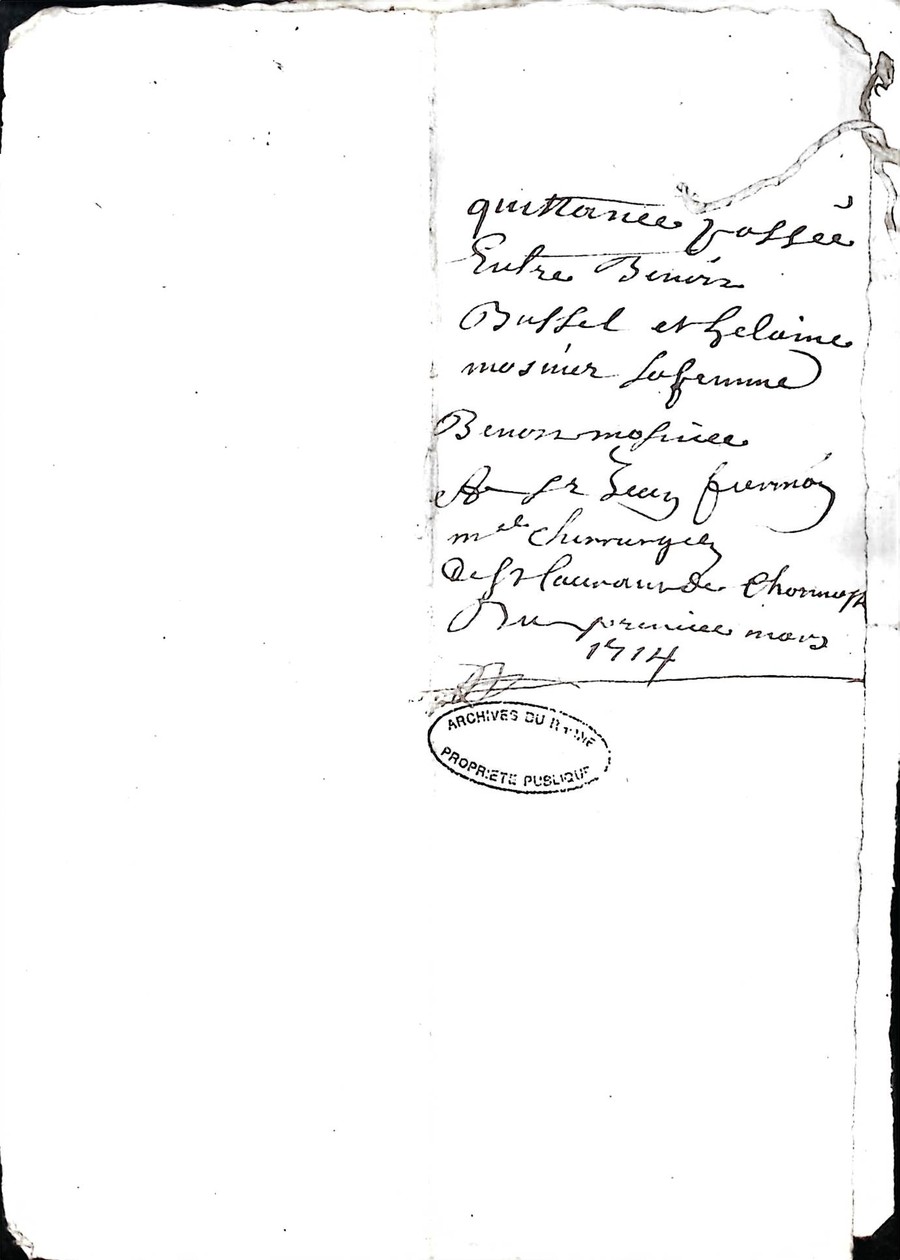 quittance passée
Entre Benoit
Bussel et helaine
mosnier sa femme
Benoit mosnier
A Sr Jean
me chirurgien
De St Laurant de Chamousst
Du premier mars
1714
ARCHIVES DU RHONE
PROPRIETE PUBLIQUE